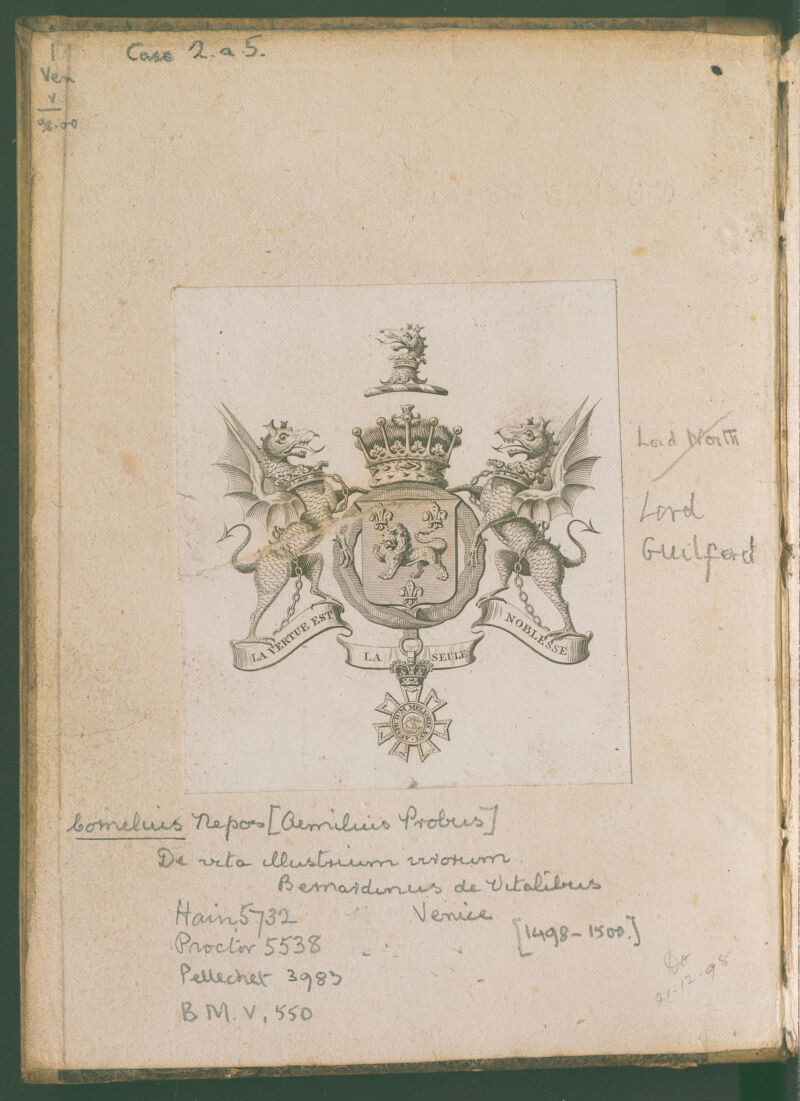 1
Ven
v
98.00
Case 2. a 5.
Lord North
Lord
Guilford
LA VERTUE EST
LA SEULE
NOBLESSE
AUSPICIUM MELIORIS ÆVI
Cornelius Nepos [Aemilius Probus]
De vita illustrium virorum.
Bernardinus de Vitalibus
Venice
[1498-1500.]
Hain 5732
Proctor 5538
Pellechet 3983
B M. V, 550
21-12-98